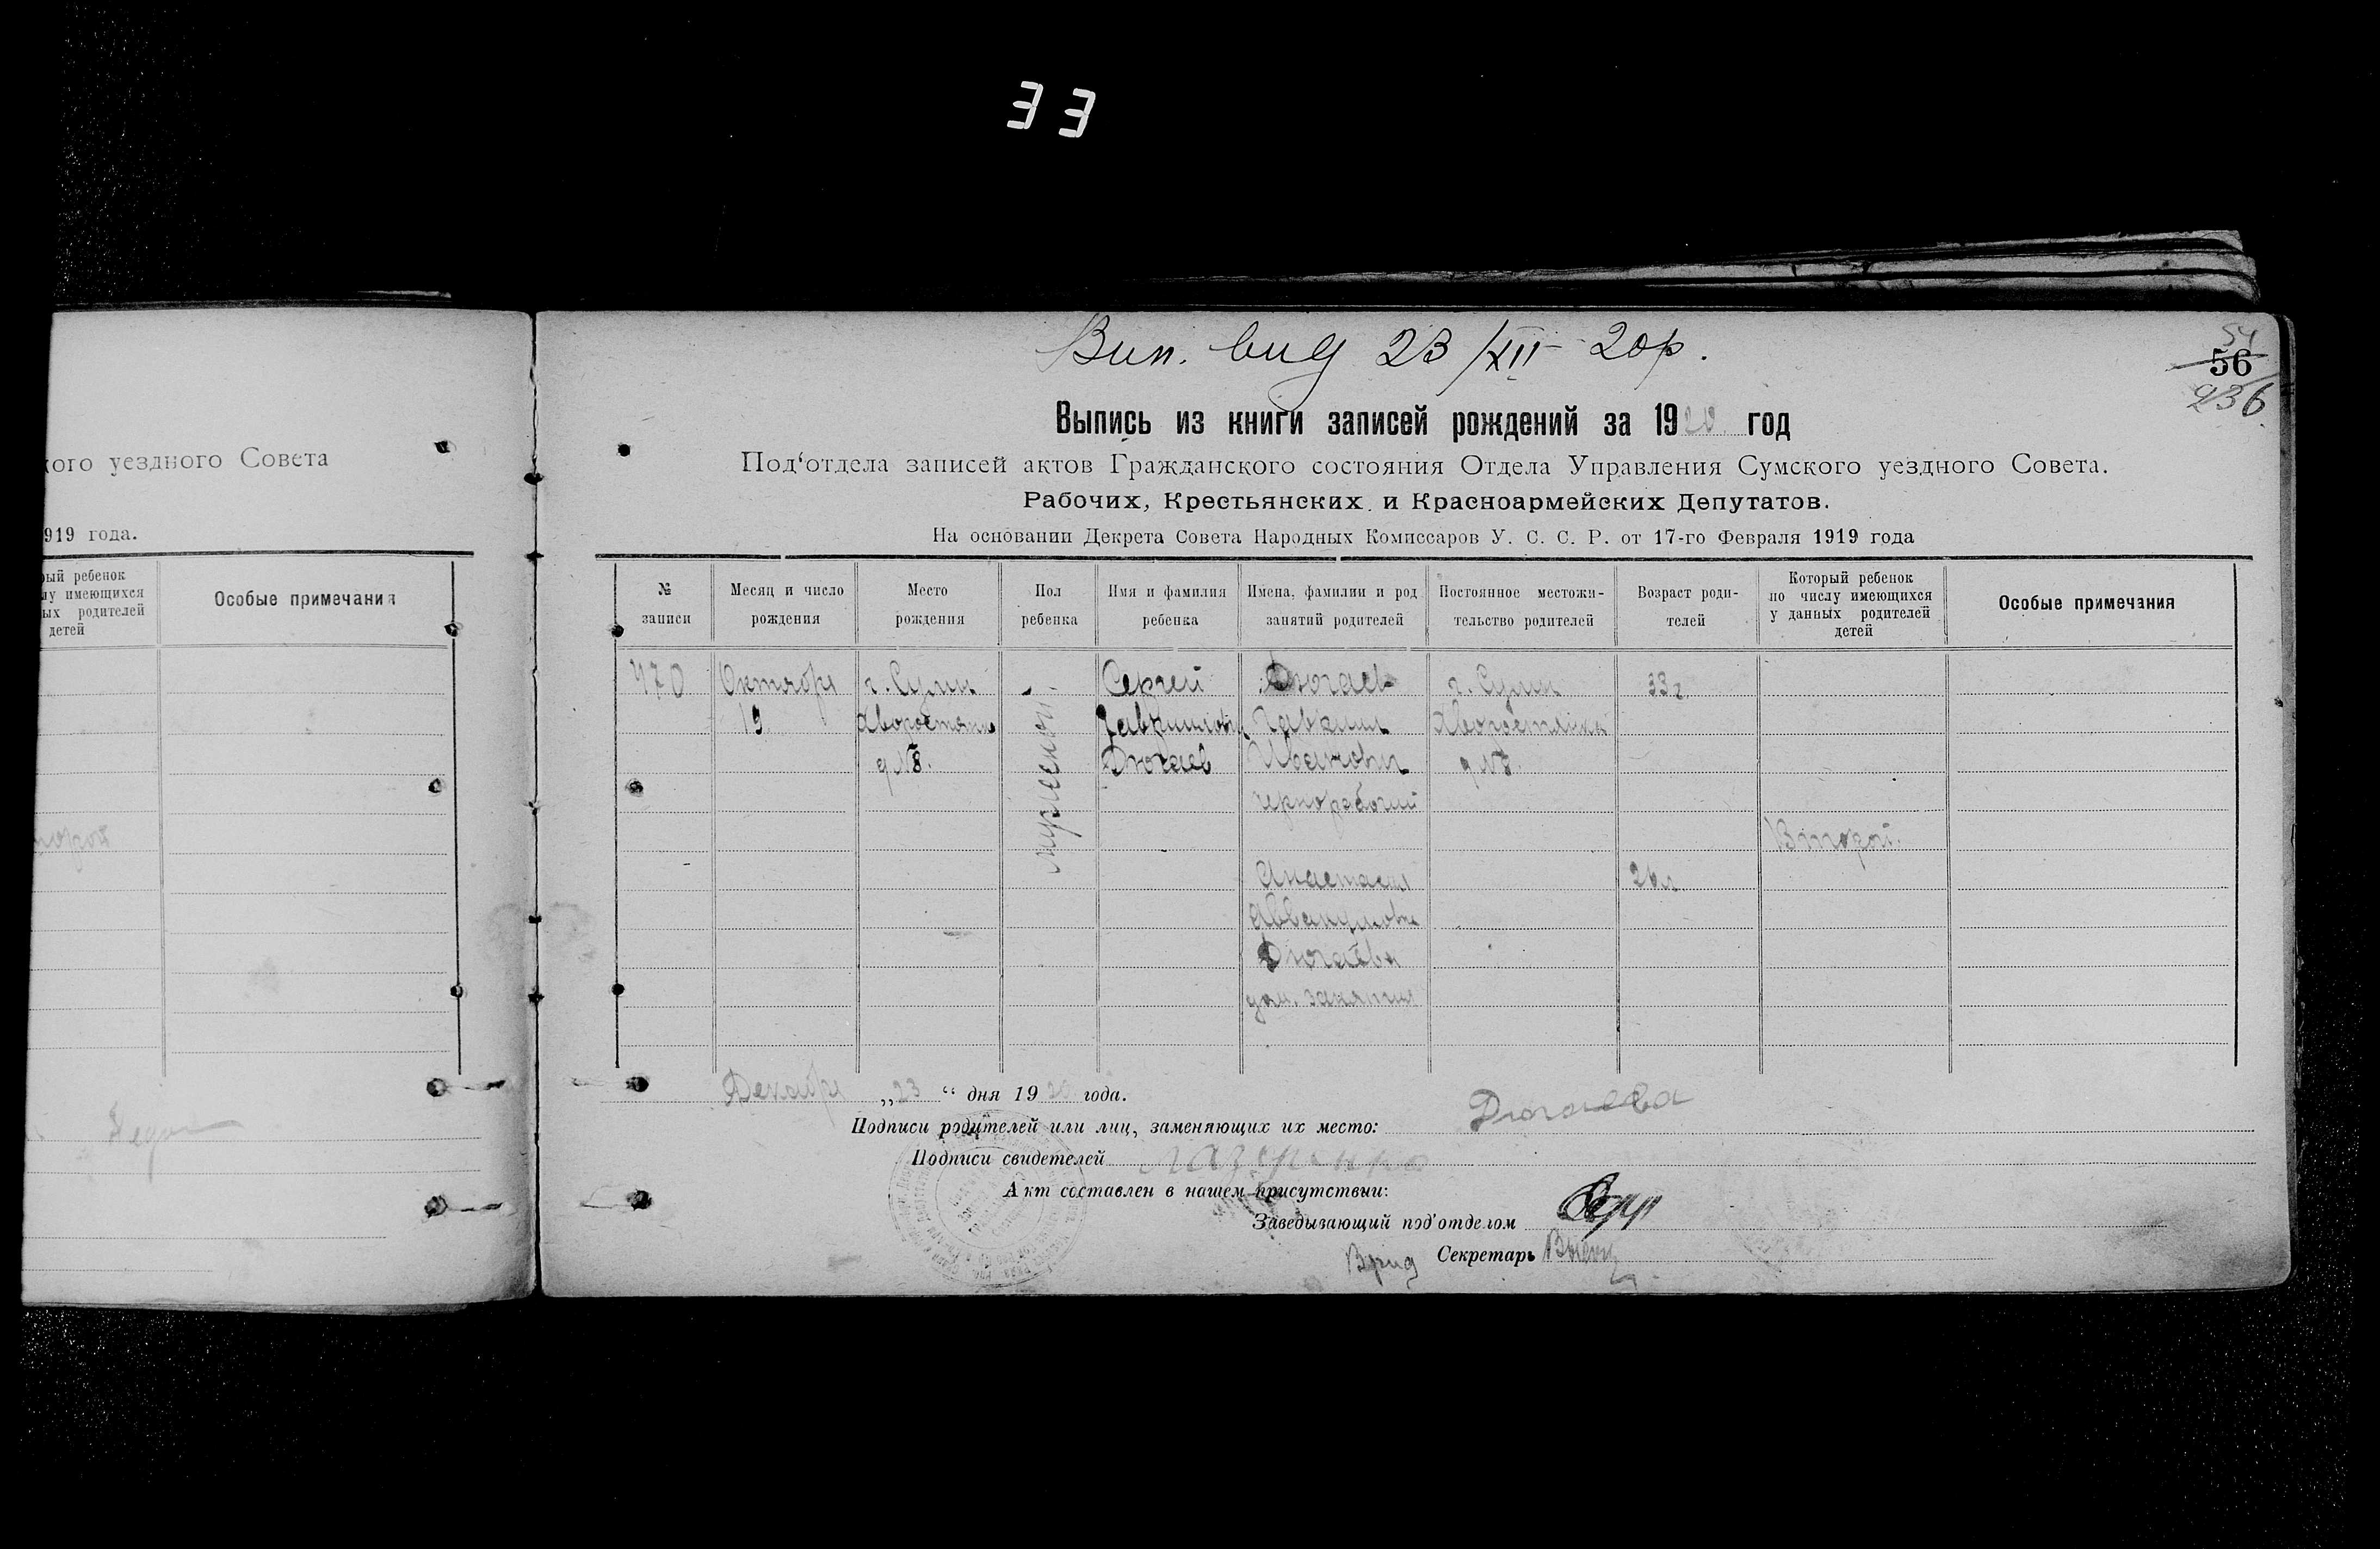 33
Вип. вид 23/XII 20р.
54
56
236
Выпись из книги записей рождений за 1920 год
Под‘отдела записей актов Гражданского состояния Отдела Управления Сумского уездного Совета.
Рабочих, Крестьянских и Красноармейских Депутатов.
На основании Декрета Совета Народных Комиссаров У. С. С. Р. от 17-го Февраля 1919 года
№ записи
Месяц и число рождения
Место рождения
Пол ребенка
Имя и фамилия ребенка
Имена, фамилии и род занятий родителей
Постоянное местожительство родителей
Возраст родителей
Который ребенок по числу имеющихся у данных родителей детей
Особые примечания
470
Октября
19
г. Сумы
д №8.
мужеской
Сергей
Гавриилович
Дюгаев
Дюгаев
Гавриил
Иванович
чернорабочий
Анастасия
Аввакумовна
Дюгаева
дом. занятия
г. Сумы
д №8.
33 г
26 л
Второй.
Декабря „23“ дня 1920 года.
Подписи родителей или лиц, заменяющих их место: Дюгаева
Подписи свидетелей
Акт составлен в нашем присутствии:
Заведывающий под‘отделом
Врид Секретарь
кого уездного Совета
919 года.
рый ребенок
лу имеющихся
ых родителей
детей
Особые примечания
торой